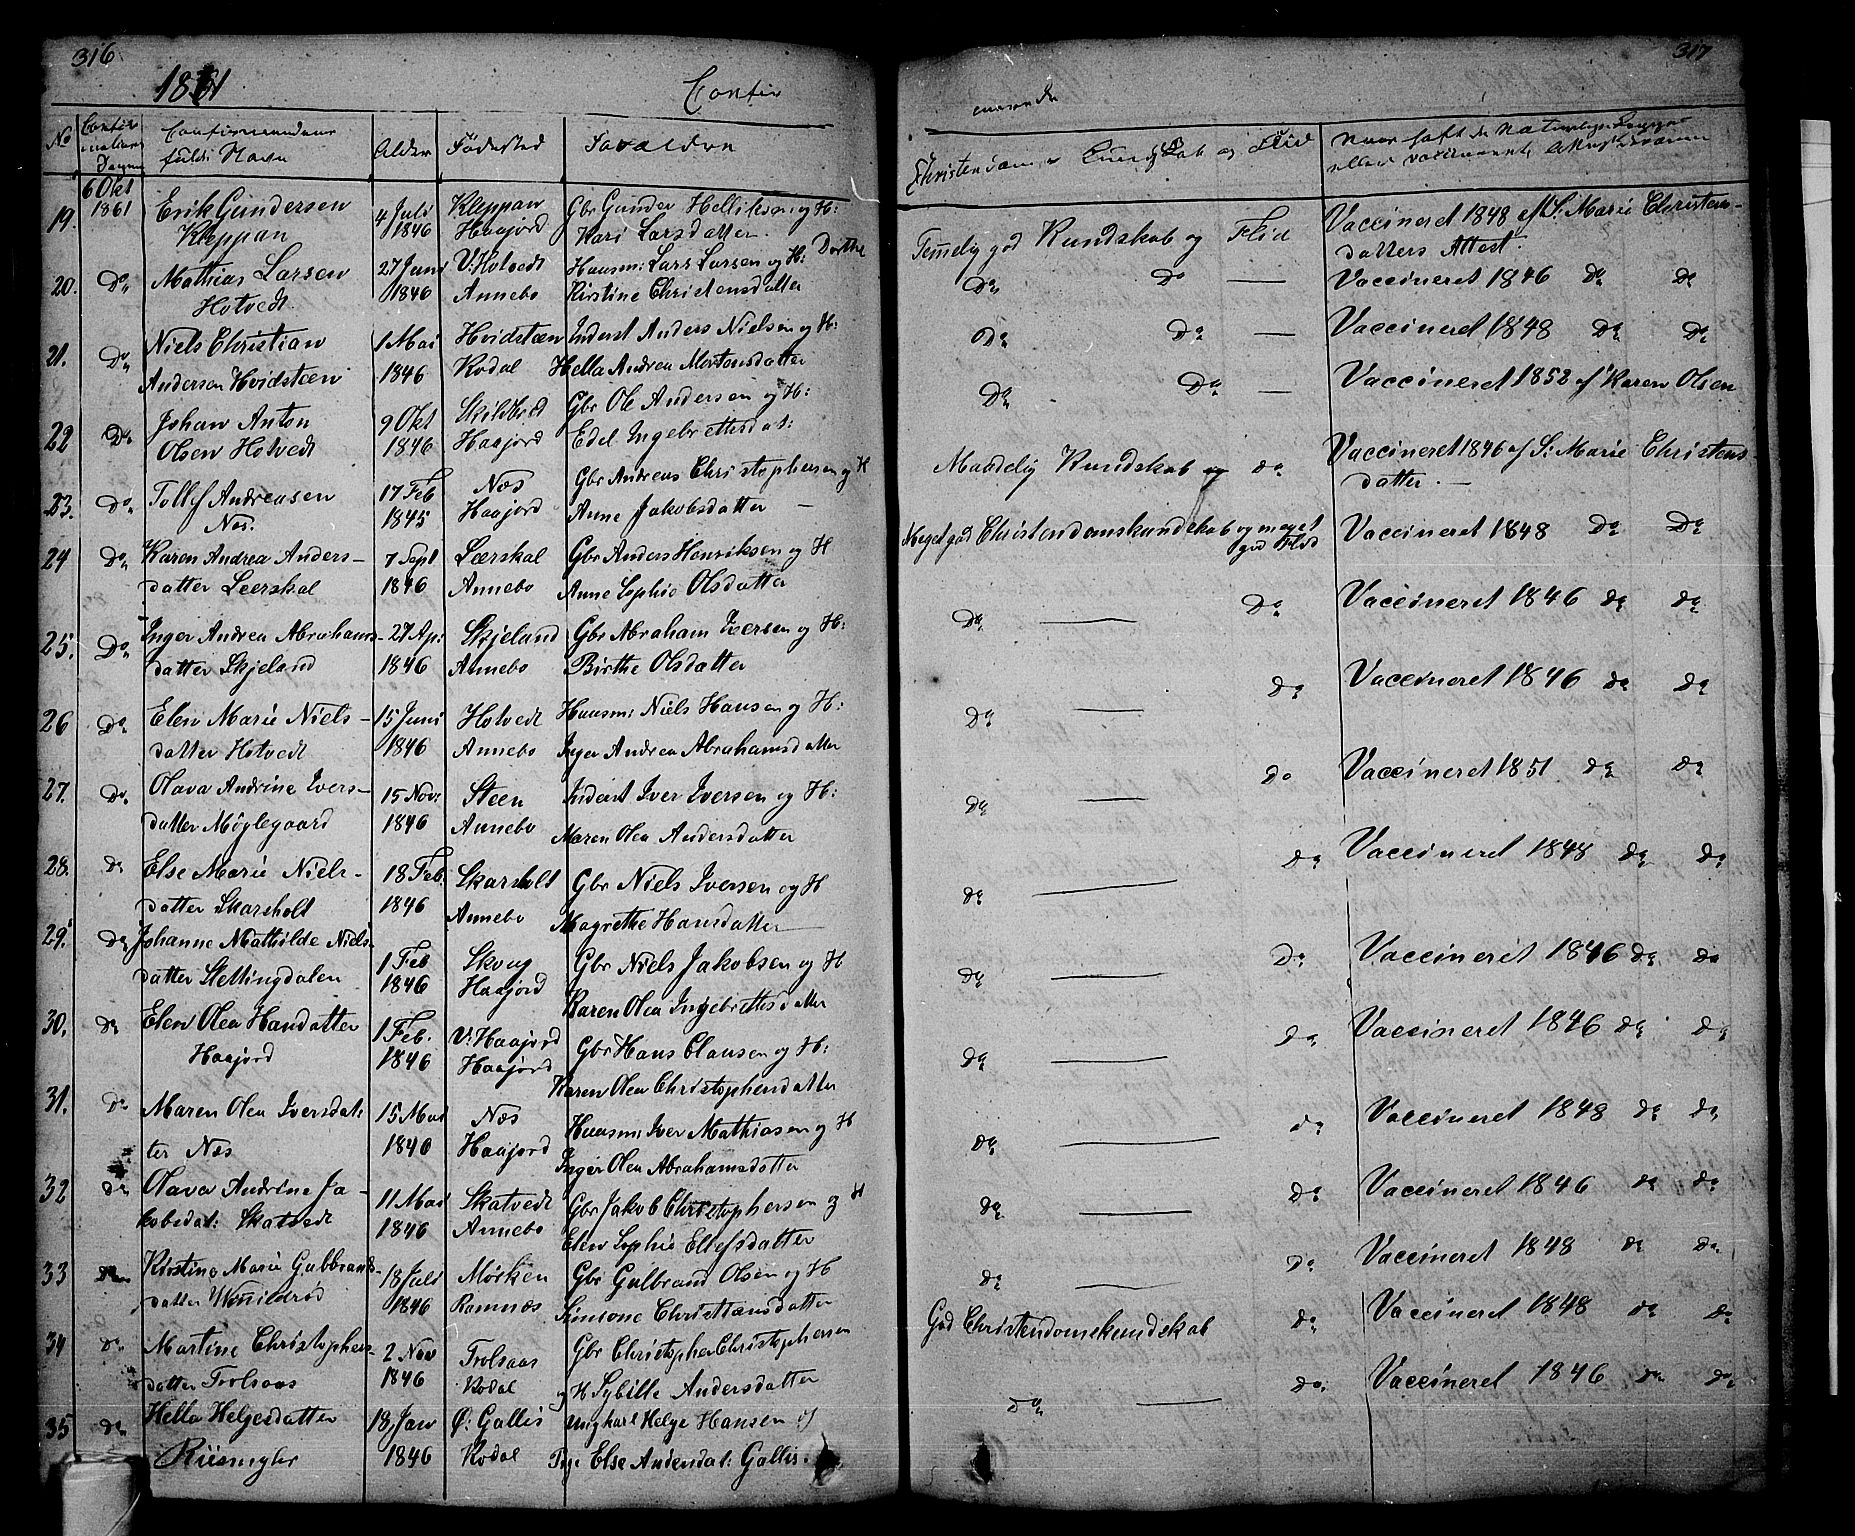 316
1861
Confir
No
Confir
mations
Dagen
Confirmandens
fulde Navn
Alder
Fødested
Foræ­ldre
6 Okt
1861
19.
Erik Gundersen
Kleppan
4 Juli
1846
Kleppan
Haajord
Gbr Gunder Helliksen og H:
Kari Larsdatter.
20.
Do
Mathias Larsen
Hotvedt.
27 Juni
1846
V: Hotvedt
Annebo
Huusm: Lars Larsen og H: Dorthe
Kirstine Christensdatter
21.
Do
Niels Christian
Andersen Hvidsteen
1 Mai
1846
Hvidsteen
Kodal
Inderst Anders Nielsen og H:
Hella Andrea Mortensdatter
22
Do
Johan Anton
Olsen Hotvedt
9 Okt
1846
Skildbred
Haajord
Gbr Ole Andersen og H:
Edel Ingebrettsdat:
23.
Do
Tollef Andreasen
Næs.
17 Feb
1845
Næs
Haajord
Gbr Andreas Christophersen og H
Anne Jakobsdatter —
24
Do
Karen Andrea Anders-
datter Leerskal
7 Sept
1846
Lærskal
Annebo
Gbr Anders Henriksen og H
Anne Sophie Olsdatter
25.
Do
Inger Andrea Abrahams-
datter Skjeland
27 Ap:
1846
Skjeland
Annebo
Gbr Abraham Iversen og H:
Birthe Olsdatter
26
Do
Elen Marie Niels-
datter Hotvedt
15 Juni
1846
Hotvedt
Annebo
Huusm: Niels Hansen og H:
Inger Andrea Abrahamsdatter
27.
Do
Olava Andrine Ivers-
datter Møglegaard
15 Nov:
1846
Steen
Annebo
Inderst Iver Iversen og H:
Maren Olea Andersdatter
28.
do
Else Marie Niels-
datter Skarsholt
18 Feb.
1846
Skarsholt
Annebo
Gbr Niels Iversen og H
Magrethe Hansdatter
29.
do
Johanne Mathilde Niels-
datter Slettingdalen
1 Feb
1846
Skoug
Haajord
Gbr Niels Jakobsen og H
Karen Olea Ingebrettsdatter
30.
do
Elen Olea Handatter
Haajord
1 Feb.
1846
V: Haajord
Haajord
Gbr Hans Clausen og H:
Karen Olea Christophersdatter
31.
Do
Maren Olea Iversdat:
ter Næs
15 Mai
1846
Næs
Haajord
Huusm: Iver Mathiasen og H
Inger Olea Abrahamsdatter
32
do
Olava Andrine Ja-
kobsdat: Skatvedt
11 Mai
1846
Skatvedt
Annebo
Gbr Jakob Christophersen og H
Elen Sophie Ellefsdatter
33
do
Kirstine Marie Gulbrands-
datter Wenildrød
18 Juli
1846
Mørken
Ramnæs
Gbr Gulbrand Olsen og H
Simone Christiansdatter
34
do
Martine Christophers-
datter Trolsaas
2 Nov
1846
Trolsaas
Kodal
Gbr Christopher Christophersen
og H Sybille Andersdatter
35
do
Hella Helgesdatter
Riismyhr
18 Jan
1846
Ø: Gallis
Kodal
Ungkarl Helge Hansen og
Pige Else Andersdat: Gallis.
317
merende
Christendoms Kundskab og Flid
Naar havt de Naturlige Kopper
eller vaccineret,
Temelig god Kundskab og Flid
Vaccineret 1848 af S: Marie Christens-
datters Attest.
Do Do —
Vaccineret 1846 do do
Do Do —
Vaccineret 1848 Do Do
Do Do —
Vaccineret 1852 af Karen Olsen
Maadelig Kundskab og do
Vaccineret 1846 af S: Marie Christens-
datter. —
Meget god Christendomskundskab og meget
god Flid
Vaccineret 1848 Do Do
Do — Do
Vaccineret 1846 do do
Do — do
Vaccineret 1846 do do
Do — do
Vaccineret 1851 do do
do — do
Vaccineret 1848 do do
do — Do
Vaccineret 1846 do do
do — do
Vaccineret 1846 do do
do — do
Vaccineret 1848 do do
do — do
Vaccineret 1846 do do
do — do
Vaccineret 1848 do do
God Christendomskundskab do
Vaccineret 1848 do do
do — do
Vaccineret 1846 do do